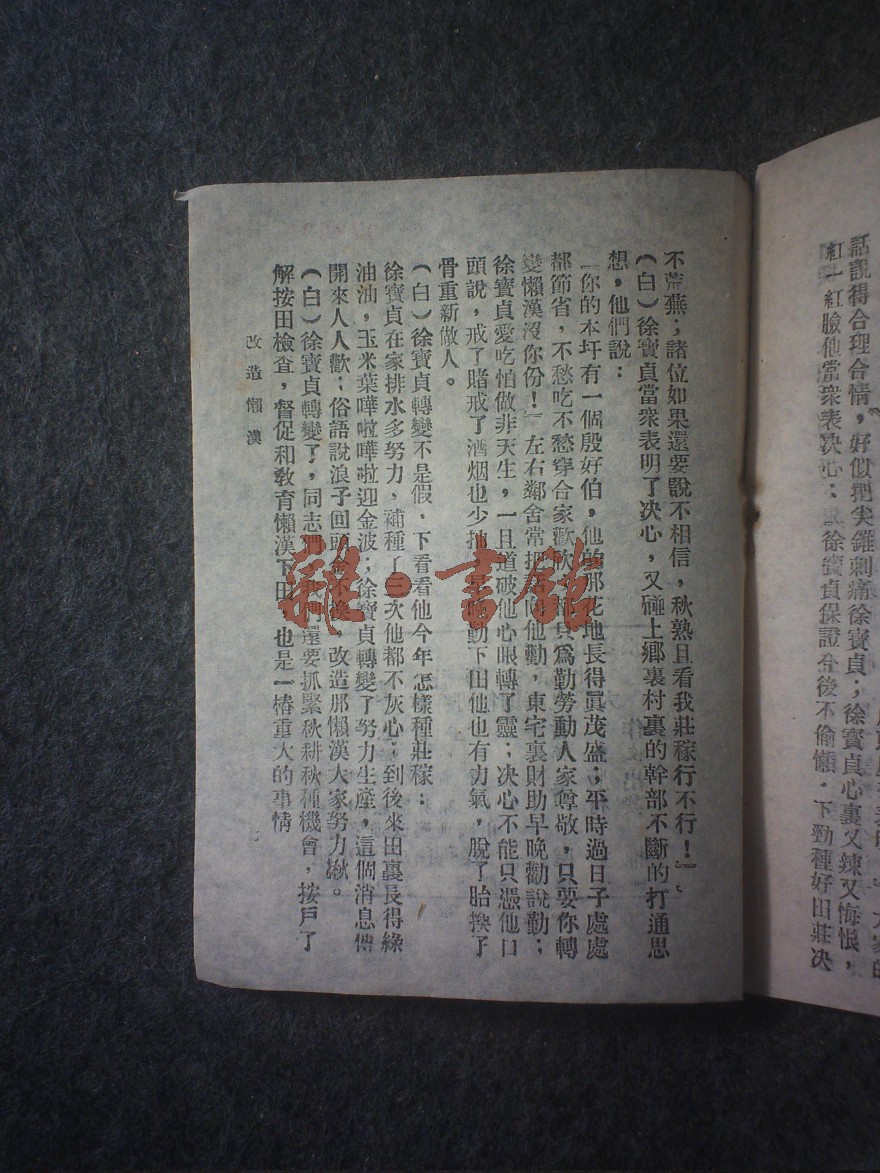 話說得合理合情，好似把尖錐刺痛徐寶貞；徐寶貞心裏又辣又悔恨，
紅一紅臉他當衆表決心：徐寶貞保證今後不偷懶．下勁種好田莊决
不荒蕪；諸位如果還要說不相信，秋熟且看我莊稼行不行！」
（白）徐寶貞當衆表明了决心，又碰上鄉裏村裏的幹部不斷的打通思
想，他們說：
「你的本圩有一個殷好伯，他的那花地長得眞茂盛；平時過日子處處
都節省，不愁吃不愁穿合家歡欣，都只爲勤勞動人家尊敬，只要你轉
變懶漢沒你份！」左右鄰舍常把話向他勸，東宅裏財助早晚勸說勤；
徐寶貞愛吃怕做非天生，一旦道破他心眼轉了靈；决心不能只憑他口
頭說，戒了賭戒了酒烟也少抽，早晚勤下田他也有力氣，脫了胎換了
骨重新做人。
（白）徐寶貞轉變不是假，下看看他今年怎樣種莊稼：
徐寶貞在家排水多努力，補種了三次他都不灰心；到後來田裏長得綠
油油，玉米葉嘩啦嘩啦迎金波；徐寶貞轉變了努力生產，這個消息傳
開來人人歡；俗語說浪子回頭金不換，改造那懶漢大家努力揪。
（白）徐寶貞轉變了，同志們，我們還要抓緊秋耕秋種機會，按戶了
解按田檢查，督促和教育懶漢下田，也是一樁重大的事情
改造懶漢
七
雜·書館